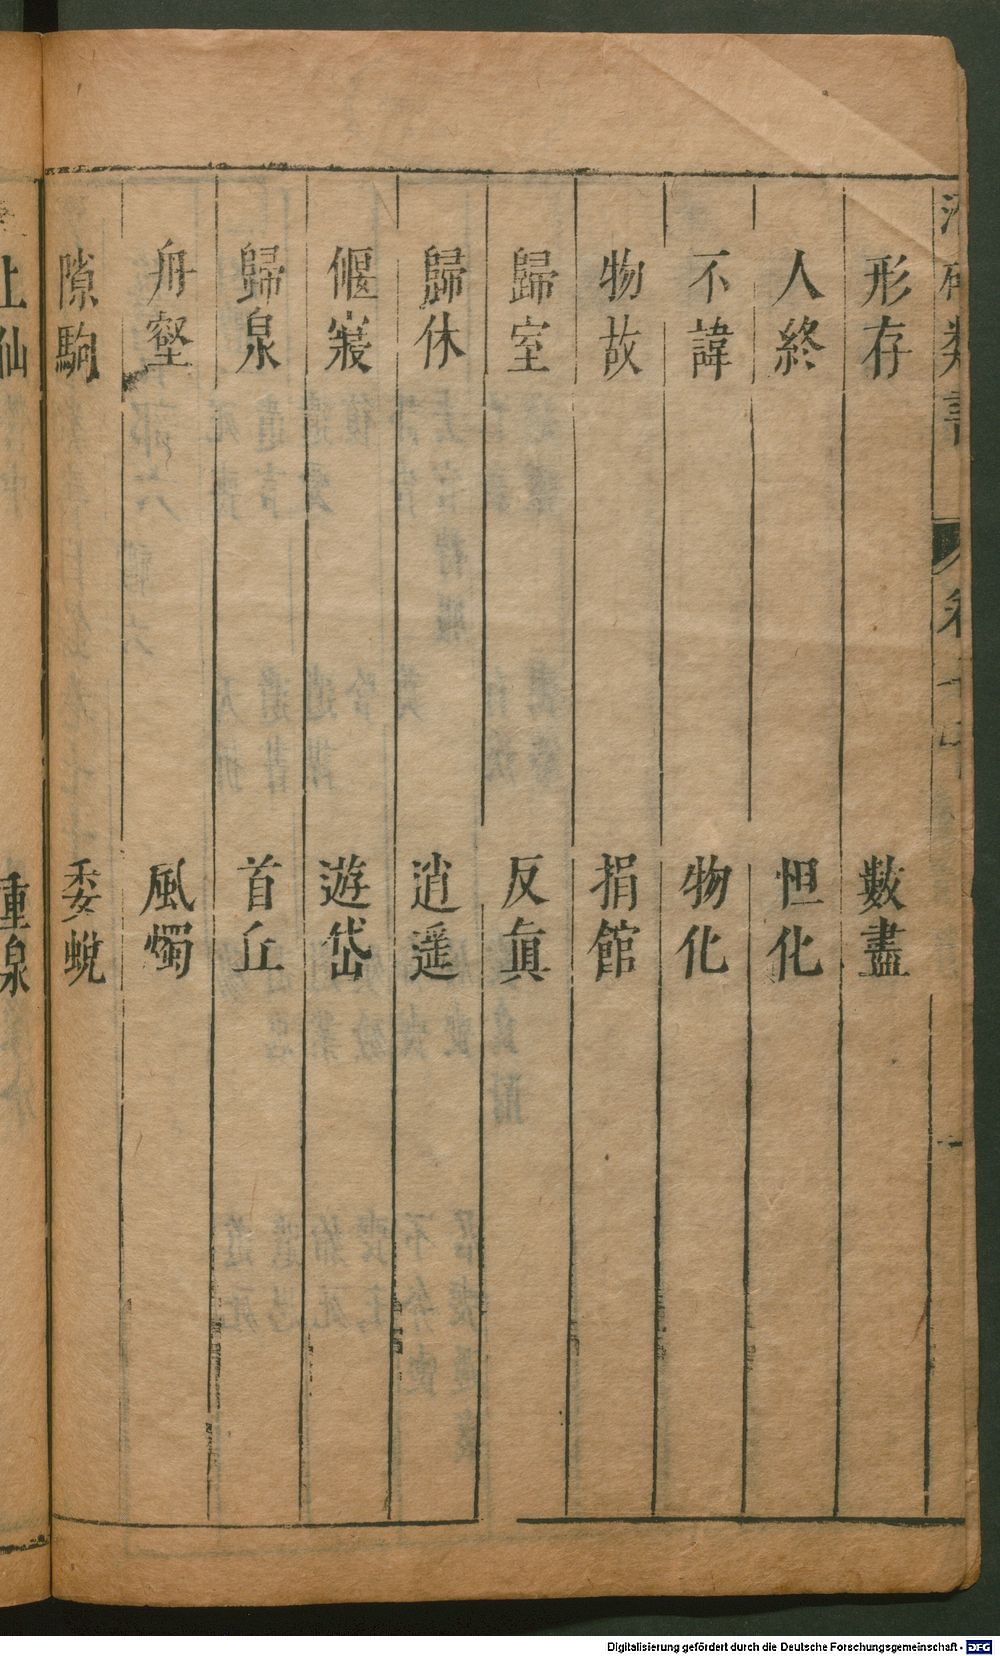 形存 數盡
人終 怛化
不諱 物化
物故 捐館
歸室 反眞
歸休 逍遥
偃寢 遊岱
歸泉 首丘
舟壑 風燭
隙駒 委蛻
重泉
Digitalisierung gefördert durch die Deutsche Forschungsgemeinschaft - DFG